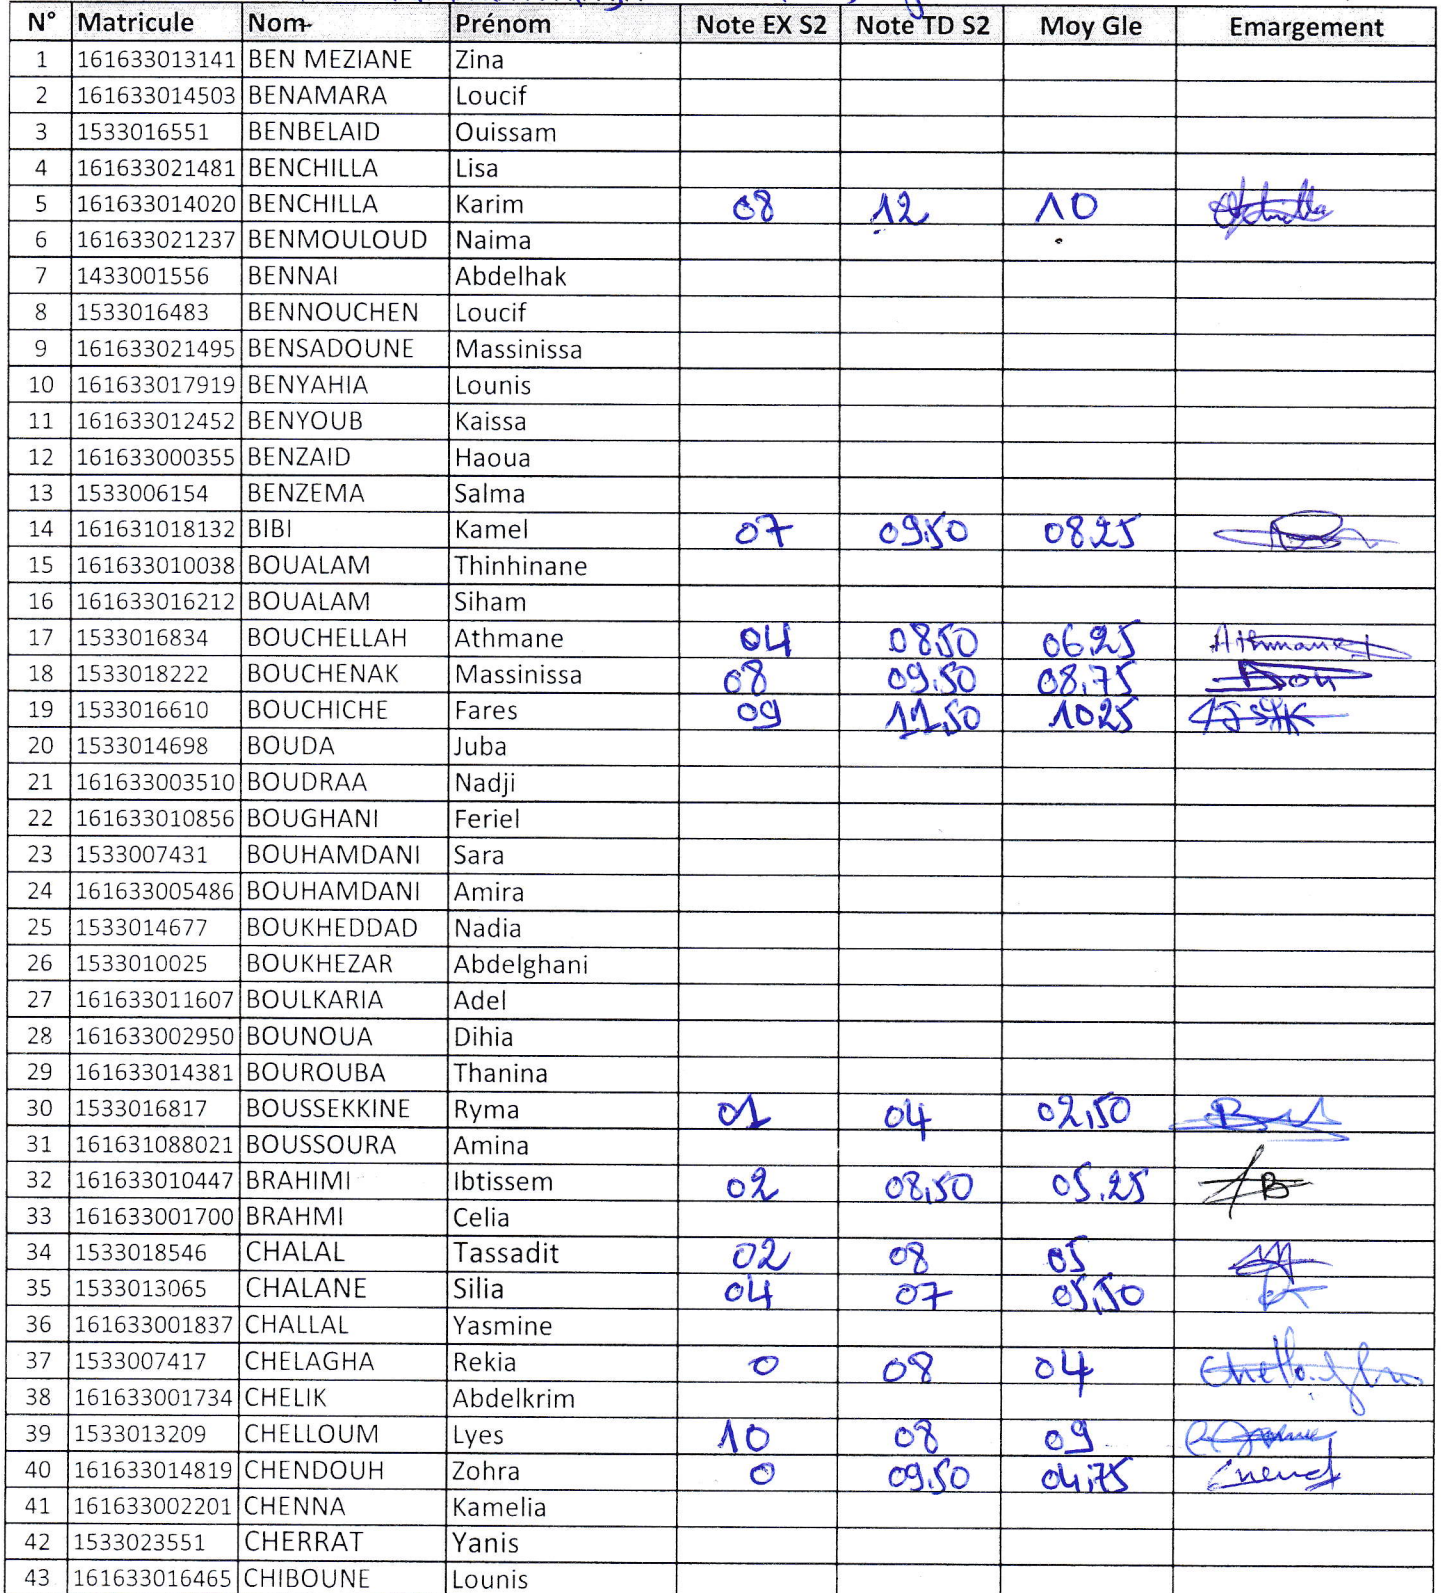 N° Matricule Nom Prénom Note EX S2 Note TD S2 Moy Gle Emargement
1 161633013141 BEN MEZIANE Zina
2 161633014503 BENAMARA Loucif
3 1533016551 BENBELAID Ouissam
4 161633021481 BENCHILLA Lisa
5 161633014020 BENCHILLA Karim 08 12 10
6 161633021237 BENMOULOUD Naima
7 1433001556 BENNAI Abdelhak
8 1533016483 BENNOUCHEN Loucif
9 161633021495 BENSADOUNE Massinissa
10 161633017919 BENYAHIA Lounis
11 161633012452 BENYOUB Kaissa
12 161633000355 BENZAID Haoua
13 1533006154 BENZEMA Salma
14 161631018132 BIBI Kamel 07 09,50 08,25
15 161633010038 BOUALAM Thinhinane
16 161633016212 BOUALAM Siham
17 1533016834 BOUCHELLAH Athmane 04 08,50 06,25 Athmane
18 1533018222 BOUCHENAK Massinissa 08 09,50 08,75 Bou
19 1533016610 BOUCHICHE Fares 09 11,50 10,25
20 1533014698 BOUDA Juba
21 161633003510 BOUDRAA Nadji
22 161633010856 BOUGHANI Feriel
23 1533007431 BOUHAMDANI Sara
24 161633005486 BOUHAMDANI Amira
25 1533014677 BOUKHEDDAD Nadia
26 1533010025 BOUKHEZAR Abdelghani
27 161633011607 BOULKARIA Adel
28 161633002950 BOUNOUA Dihia
29 161633014381 BOUROUBA Thanina
30 1533016817 BOUSSEKKINE Ryma 01 04 02,50
31 161631088021 BOUSSOURA Amina
32 161633010447 BRAHIMI Ibtissem 02 08,50 05,25
33 161633001700 BRAHMI Celia
34 1533018546 CHALAL Tassadit 02 08 05
35 1533013065 CHALANE Silia 04 07 05,50
36 161633001837 CHALLAL Yasmine
37 1533007417 CHELAGHA Rekia 0 08 04
38 161633001734 CHELIK Abdelkrim
39 1533013209 CHELLOUM Lyes 10 08 09
40 161633014819 CHENDOUH Zohra 0 09,50 04,75
41 161633002201 CHENNA Kamelia
42 1533023551 CHERRAT Yanis
43 161633016465 CHIBOUNE Lounis